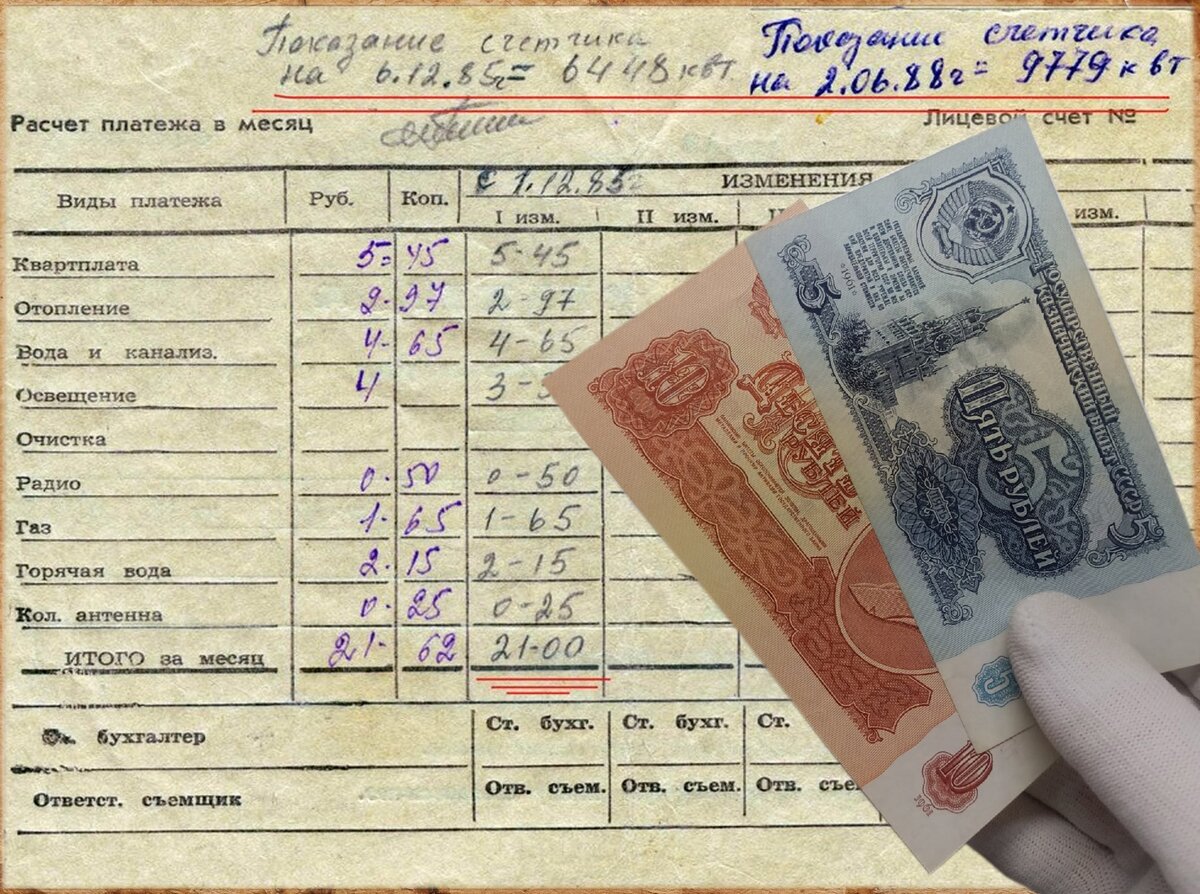 Показание счетчика
на 6.12.85г = 6448 квт
Показание счетчика
на 2.06.88г = 9779 квт
Расчет платежа в месяц
Лицевой счет №
Виды платежа Руб. Коп. с 1.12.85г ИЗМЕНЕНИЯ
I изм. II изм. изм.
Квартплата 5= 45 5-45
Отопление 2- 97 2-97
Вода и канализ. 4- 65 4-65
Освещение 4 3-
Очистка
Радио 0- 50 0-50
Газ 1- 65 1-65
Горячая вода 2- 15 2-15
Кол. антенна 0- 25 0-25
ИТОГО за месяц 21- 62 21-00
бухгалтер Ст. бухг. Ст. бухг. Ст.
Ответст. съемщик Отв. съем. Отв. съем. Отв.
10
Десять
рублей
10
1961
5
1961
Государственный
казначейский билет СССР
Пять рублей
5
5